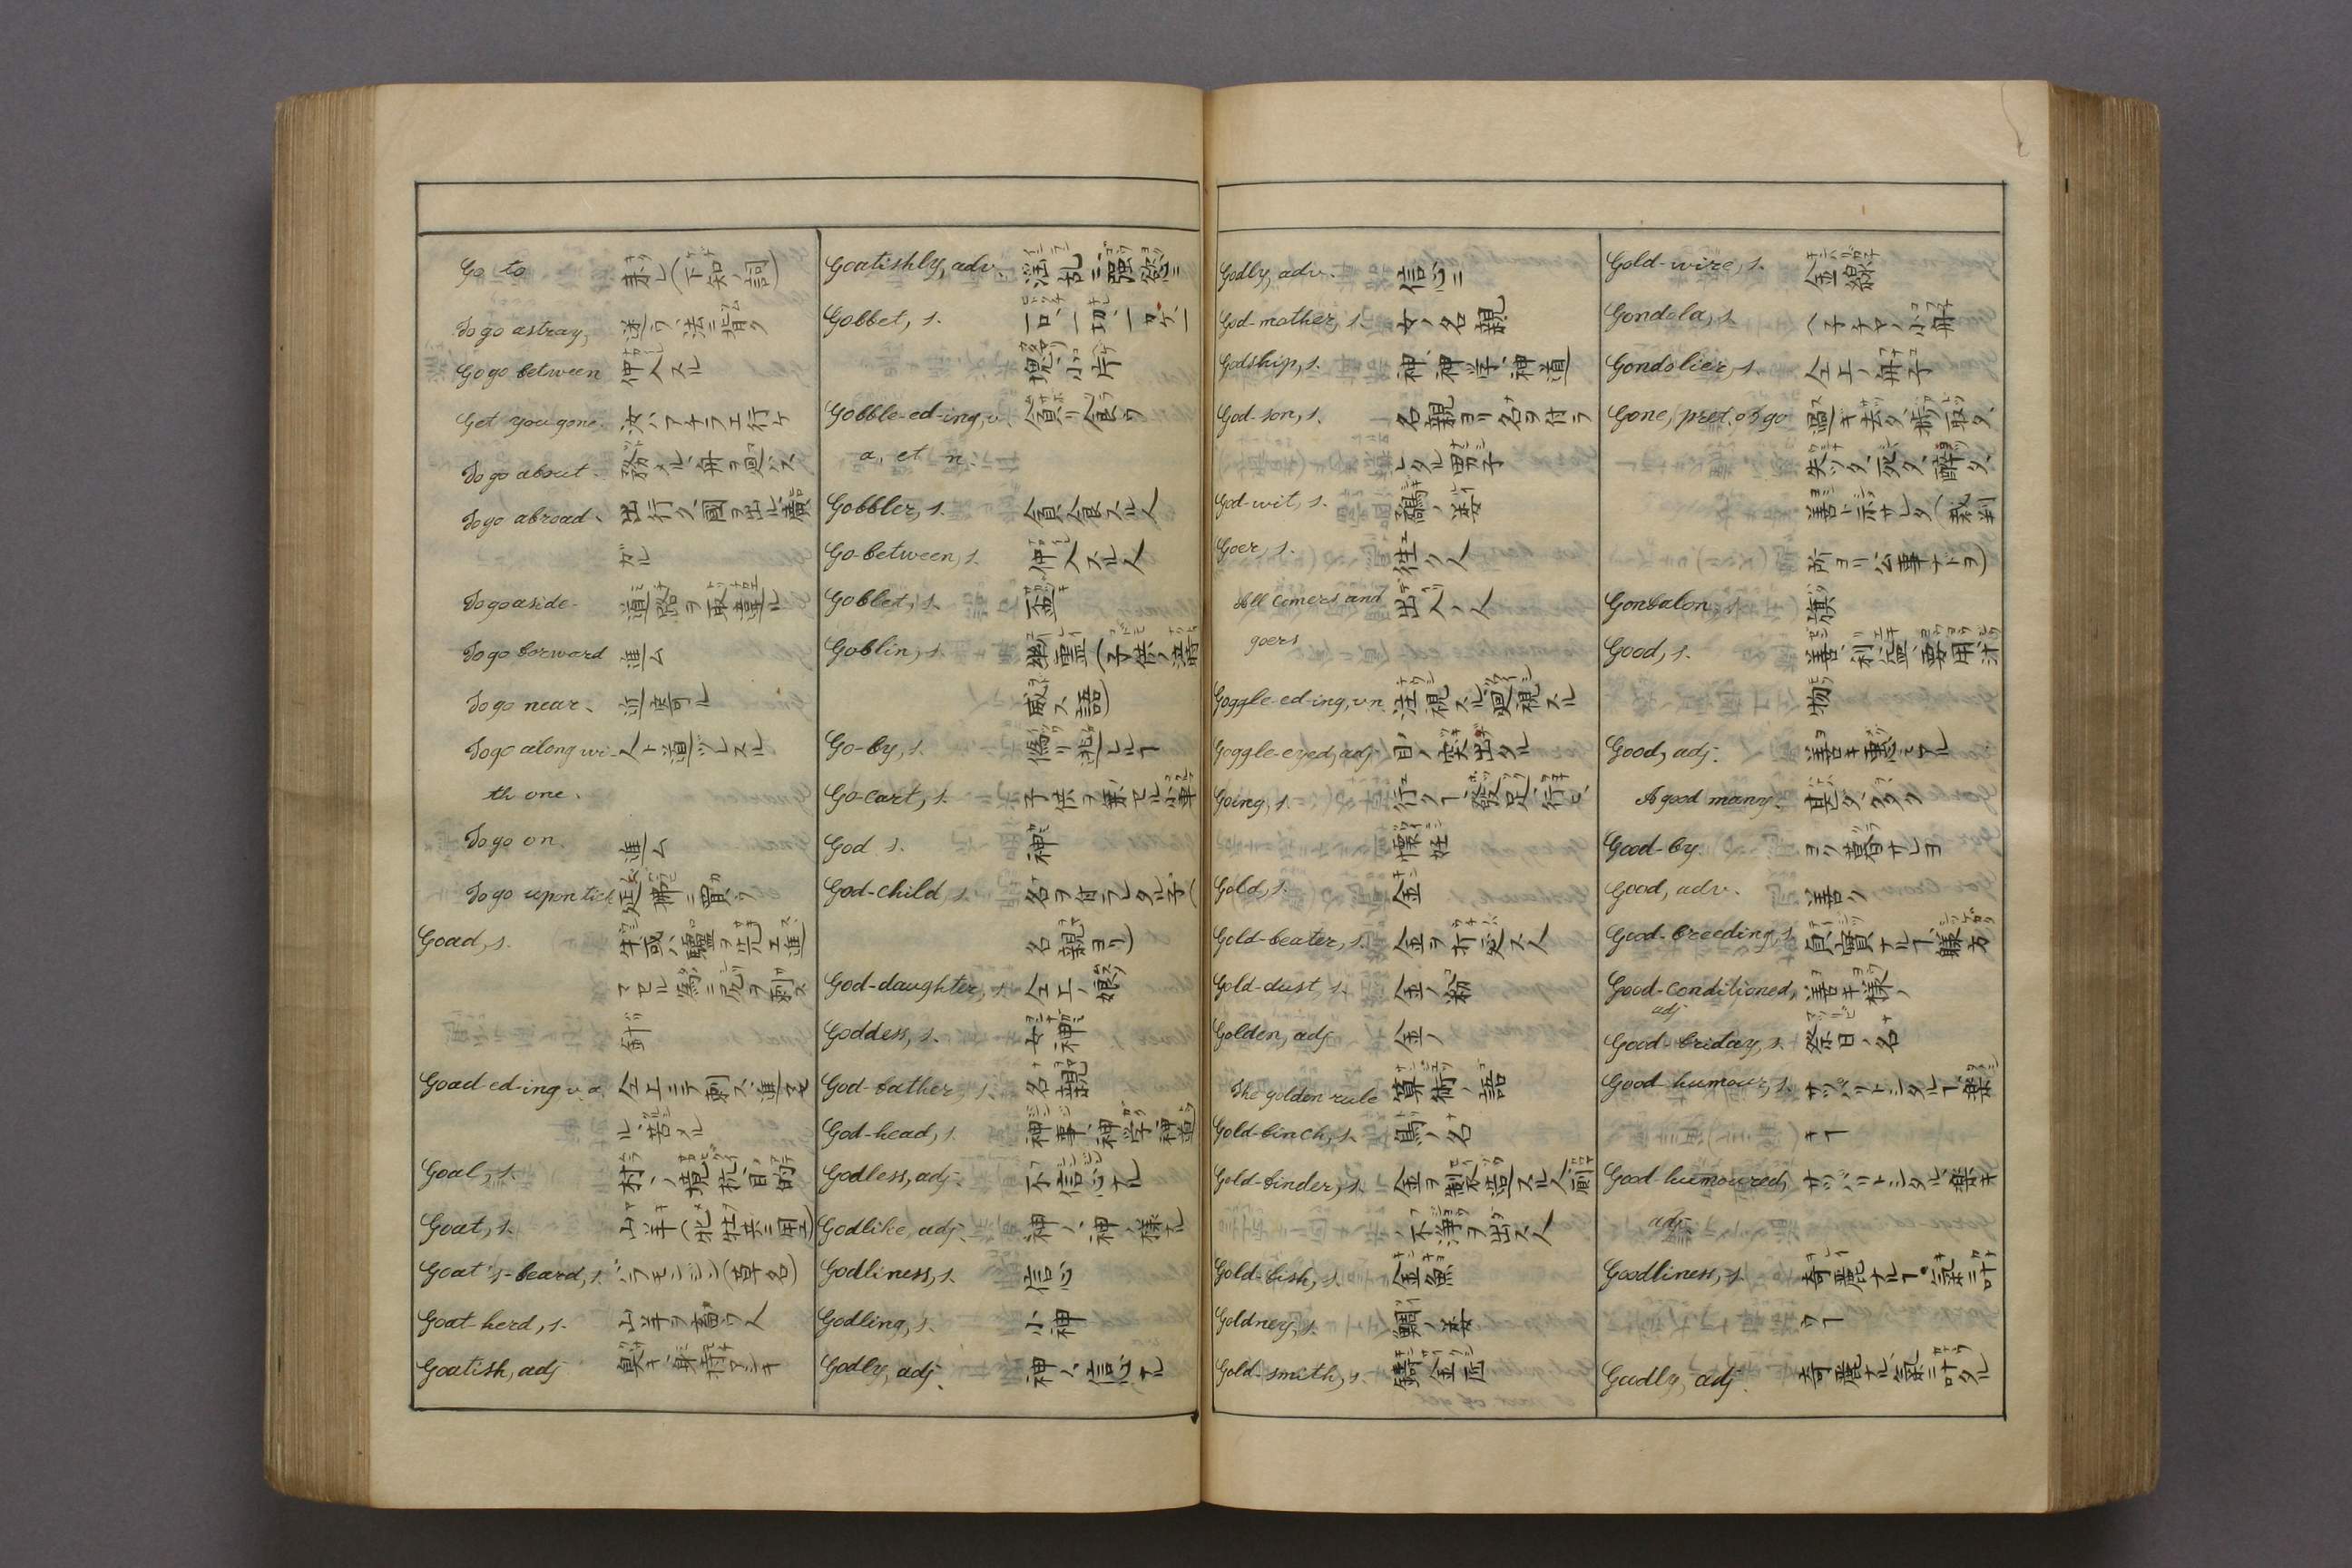 Go to 来レ(下知ノ詞)
To go astray, 迷フ、法ニ背ク
Go go between 仲人スル
Get you gone. 汝ハアチラエ行ケ
To go about. 務メル、舟ヲ廻ス
To go abroad. 出行ク、國ヲ出ル、廣
ガル
To go aside. 道路ヲ取違ル
To go forword 進ム
To go near. 近寄ル
To go along wi- 人ト道ヅレスル
th one.
To go on. 進ム
To go upon tick 延拂ニ買フ
Goad, s. 牛或ハ驢ヲ先エ進
マセル為ニ尻ヲ刺ス
針
Goad-ed-ing v. a. 仝上ニテ刺ス、進マセ
ル、苦メル
Goal, s. 村ノ境杭、目的
Goat, s. 山羊(牝牡共ニ用ユ)
Goat's-beard, s. バラモンジン(草名)
Goat-herd, s. 山羊ヲ畜フ人
Goatish, adj 臭キ、身持アシキ
Goatishly, adv. 淫乱ニ、強慾ニ
Gobbet, s. 一口、一切、一ケ、一
塊、小片
Gobble-ed-ing, v. 貪リ食フ
a. et n.
Gobbler, s. 貪食スル人
Go-between, s. 仲人スル人
Goblet, s. 盃
Goblin, s. 幽霊(子供ノ泣時
威ス語)
Go-by, s. 偽リ、逃ヒル
Go-cart, s. 子供ヲ乗セル小車
God s. 神
God-child, s. 名ヲ付ラレタル子(
名親ヨリ)
God-daughter, s. 仝上ノ娘
Goddess, s. 女神
God-father, s. 名親
God-head, s. 神事、神学、神道
Godless, adj. 不信心ナル
Godlike, adj. 神ノ、神ノ様ナル
Godliness, s. 信心
Godling, s. 小神
Godly, adj. 神ノ、信心ナル
Godly, adv. 信心ニ
God-mother, s. 女ノ名親
Godship, s. 神、神学、神道
God-son, s. 名親ヨリ名ヲ付ラ
レタル男子
God-wit, s. 鷸ノ類
Goer, s. 往ク人
All comers and 出入ノ人
goers
Goggle-ed-ing, v.n. 注視スル、廻視スル
Goggle-eyed, adj 目ノ突出タル
Going, s. 行クヿ、發足、行ヒ、
懐妊
Gold, s. 金
Gold-beater, s. 金ヲ打延ス人
Gold-dust, s. 金ノ粉
Golden, adj 金ノ
The golden rule 算術ノ語
Gold-finch, s. 鳥ノ名
Gold-finder, s. 金ヲ製造スル人、厠
ノ不浄ヲ出ス人
Gold-fish, s. 金魚
Goldney, s. 鯛ノ類
Gold-smith, s. 鑄金匠
Gold-wire, s. 金線
Gondola, s. ベ子チヤノ小舟
Gondolier, s. 仝上ノ舟子
Gone, pret. of go 過キ去タ、奪取タ、
失ツタ、死タ、酔タ、
善ト示サレタ(裁判
所ヨリ公事ナドヲ)
Gonfalon, s. 旗
Good, s. 善、利益、要用、汁
物
Good, adj. 善キ、恵アル
A good many. 甚ダ、多ク
Good-by. ヨク暮サレヨ
Good, adv. 善ク
Good-breeding, s. 貞實ナルヿ、躾方
Good-conditioned, 善キ様ノ
adj
Good-friday, s. 祭日ノ名
Good-humour, s. サッパリトシタルヿ、樂
キヿ
Good-humoured, サッパリトシタル、樂キ
adj.
Goodliness, s. 奇麗ナルヿ、氣ニ叶
フヿ
Goodly, adj. 奇麗ナル、氣ニ叶タル